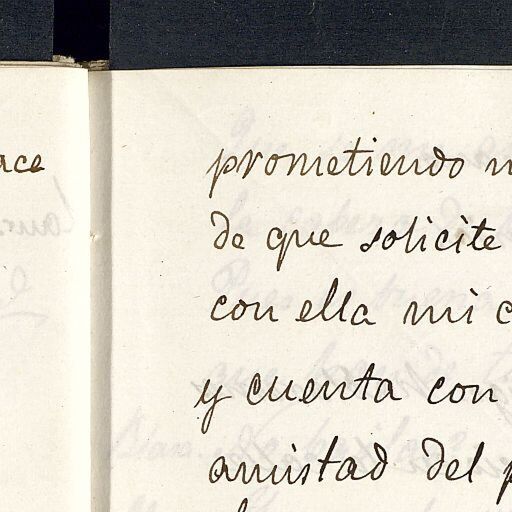 prometiendo
de que solicite
con ella mi
y cuenta con
amistad del